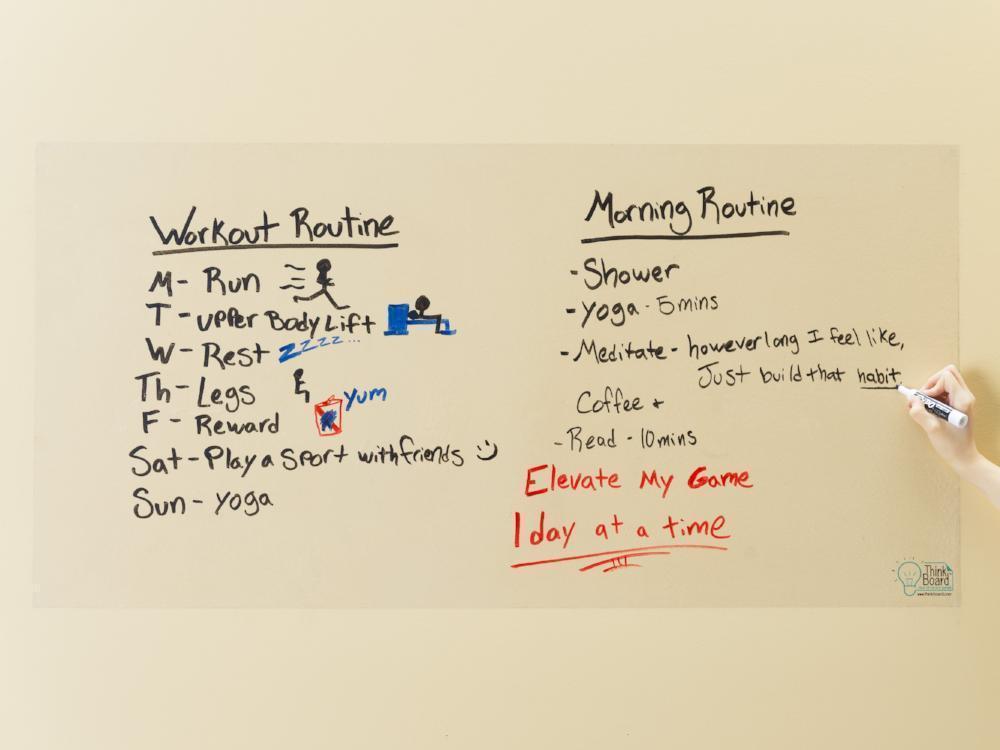 Workout Routine
M - Run
T - upper Body Lift
W - Rest zzzz...
Th - Legs
F - Reward Yum
Sat - Play a Sport with friends :)
Sun - yoga
Morning Routine
- Shower
- yoga - 5 mins
- Meditate - however long I feel like,
Just build that habit.
Coffee +
- Read - 10 mins
Elevate My Game
1 day at a time
Think
Board
www.thinkboard.com